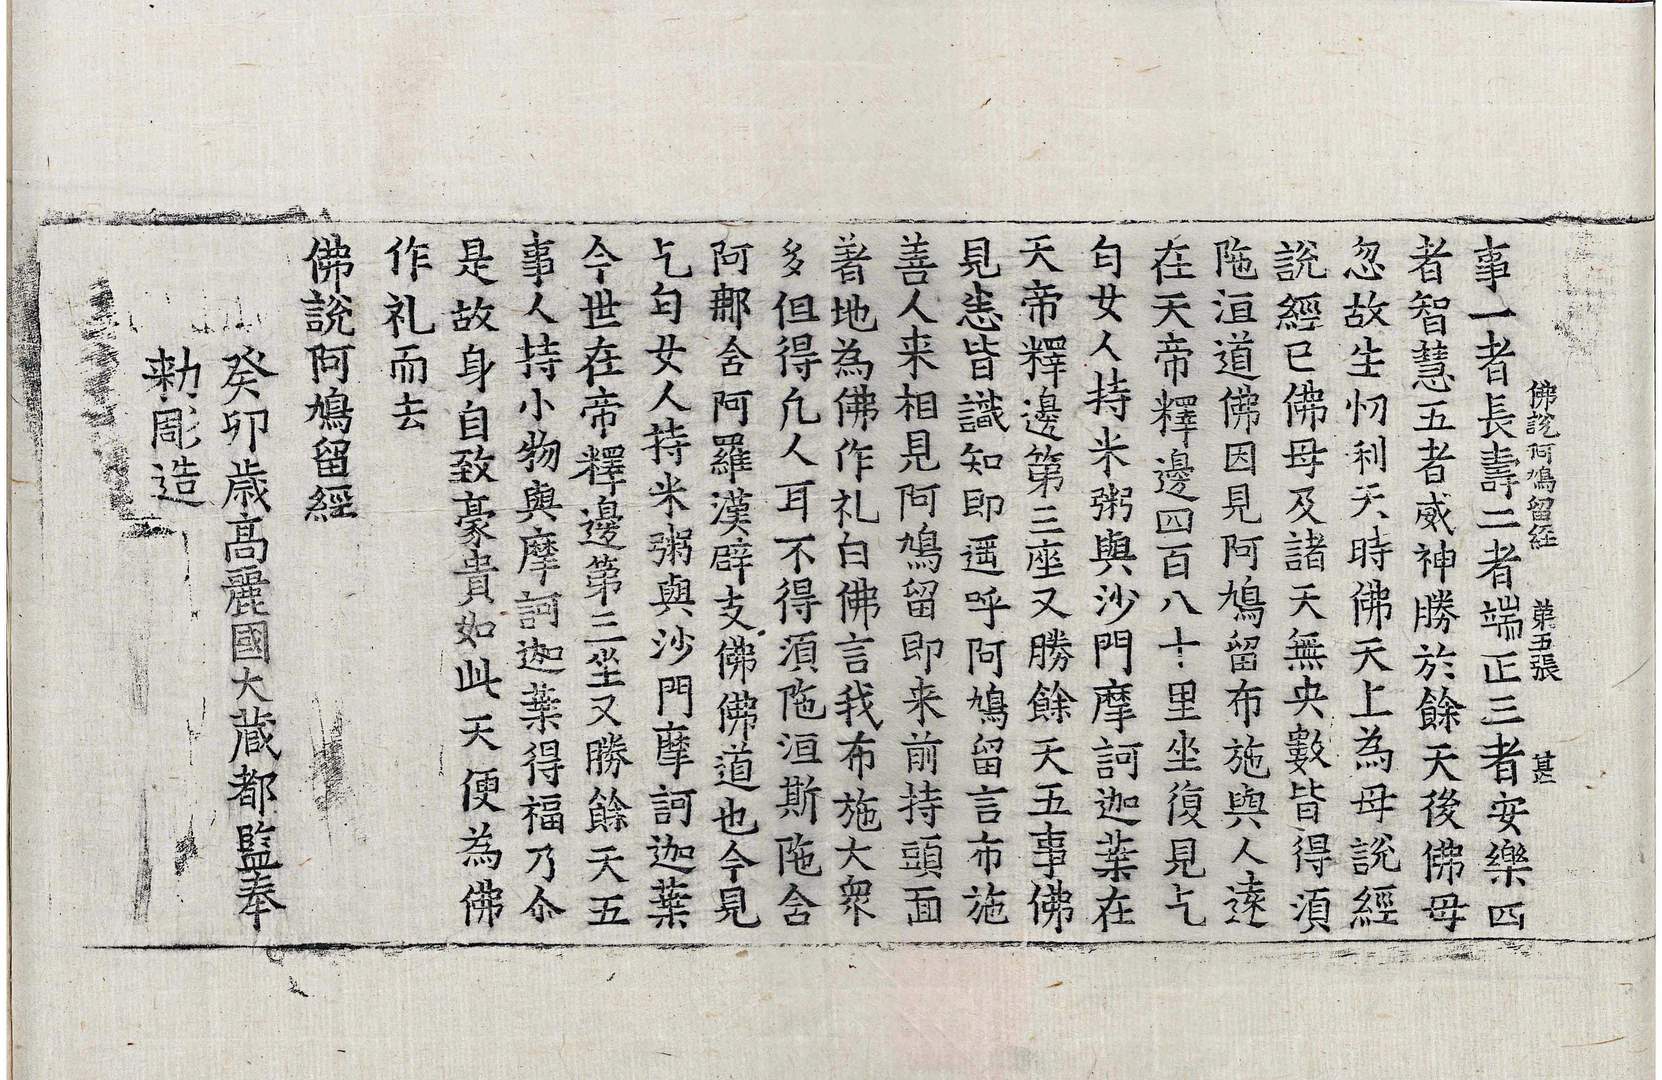 佛說阿鳩留經 第五張 甚
事一者長壽二者端正三者安樂四
者智慧五者威神勝於餘天後佛母
忽故生忉利天時佛天上為母說經
說經已佛母及諸天無央數皆得湏
陁洹道佛因見阿鳩留布施與人遠
在天帝釋邊四百八十里坐復見乞
匂女人持米粥與沙門摩訶迦葉在
天帝釋邊第三座又勝餘天五事佛
見恚皆識知即遥呼阿鳩留言布施
善人来相見阿鳩留即来前持頭面
著地為佛作礼白佛言我布施大衆
多但得凢人耳不得湏陁洹斯陁含
阿那含阿羅漢辟支佛佛道也今見
乞匂女人持米粥與沙門摩訶迦葉
今世在帝釋邊第三坐又勝餘天五
事人持小物與摩訶迦葉得福乃尒
是故身自致豪貴如此天便為佛
作礼而去
佛說阿鳩留經
癸卯歳高麗國大藏都監奉
勅彫造